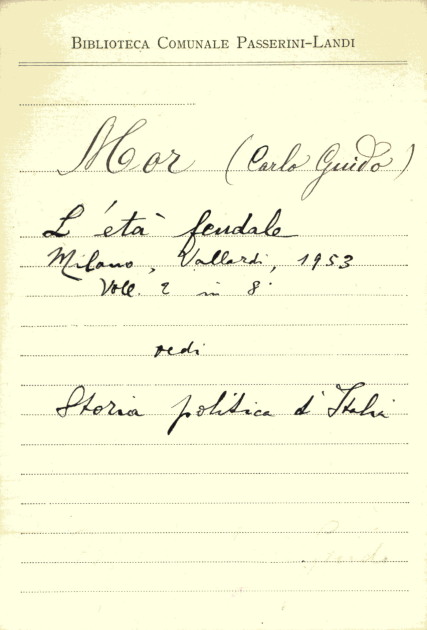 BIBLIOTECA COMUNALE PASSERINI-LANDI
Mor (Carlo Guido)
L'età feudale
Milano, Vallardi, 1953
Voll. 2 in 8°
vedi
Storia politica d'Italia